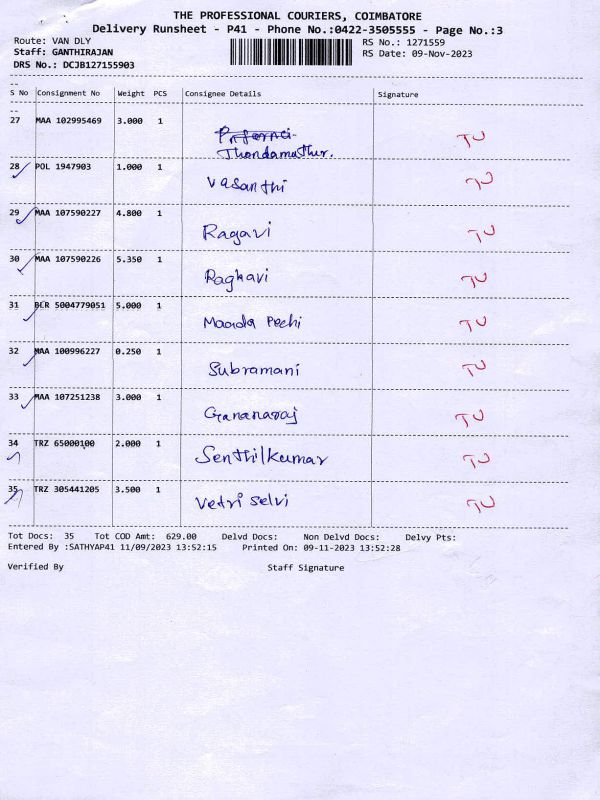 THE PROFESSIONAL COURIERS, COIMBATORE
Delivery Runsheet - P41 - Phone No.:0422-3505555 - Page No.:3
Route: VAN DLY RS No.: 1271559
Staff: GANTHIRAJAN RS Date: 09-Nov-2023
DRS No.: DCJB127155903
S No Consignment No Weight PCS Consignee Details Signature
27 MAA 102995469 3.000 1 Thondamuthur. TU
28 POL 1947903 1.000 1 Vasanthi TU
29 MAA 107590227 4.800 1 Ragavi TU
30 MAA 107590226 5.350 1 Raghavi TU
31 BLR 5004779051 5.000 1 Maada Pechi TU
32 MAA 100996227 0.250 1 Subramani TU
33 MAA 107251238 3.000 1 Gananaraj TU
34 TRZ 65000100 2.000 1 Senthilkumar TU
35 TRZ 305441205 3.500 1 Vetri Selvi TU
Tot Docs: 35 Tot COD Amt: 629.00 Delvd Docs: Non Delvd Docs: Delvy Pts:
Entered By :SATHYAP41 11/09/2023 13:52:15 Printed On: 09-11-2023 13:52:28
Verified By Staff Signature